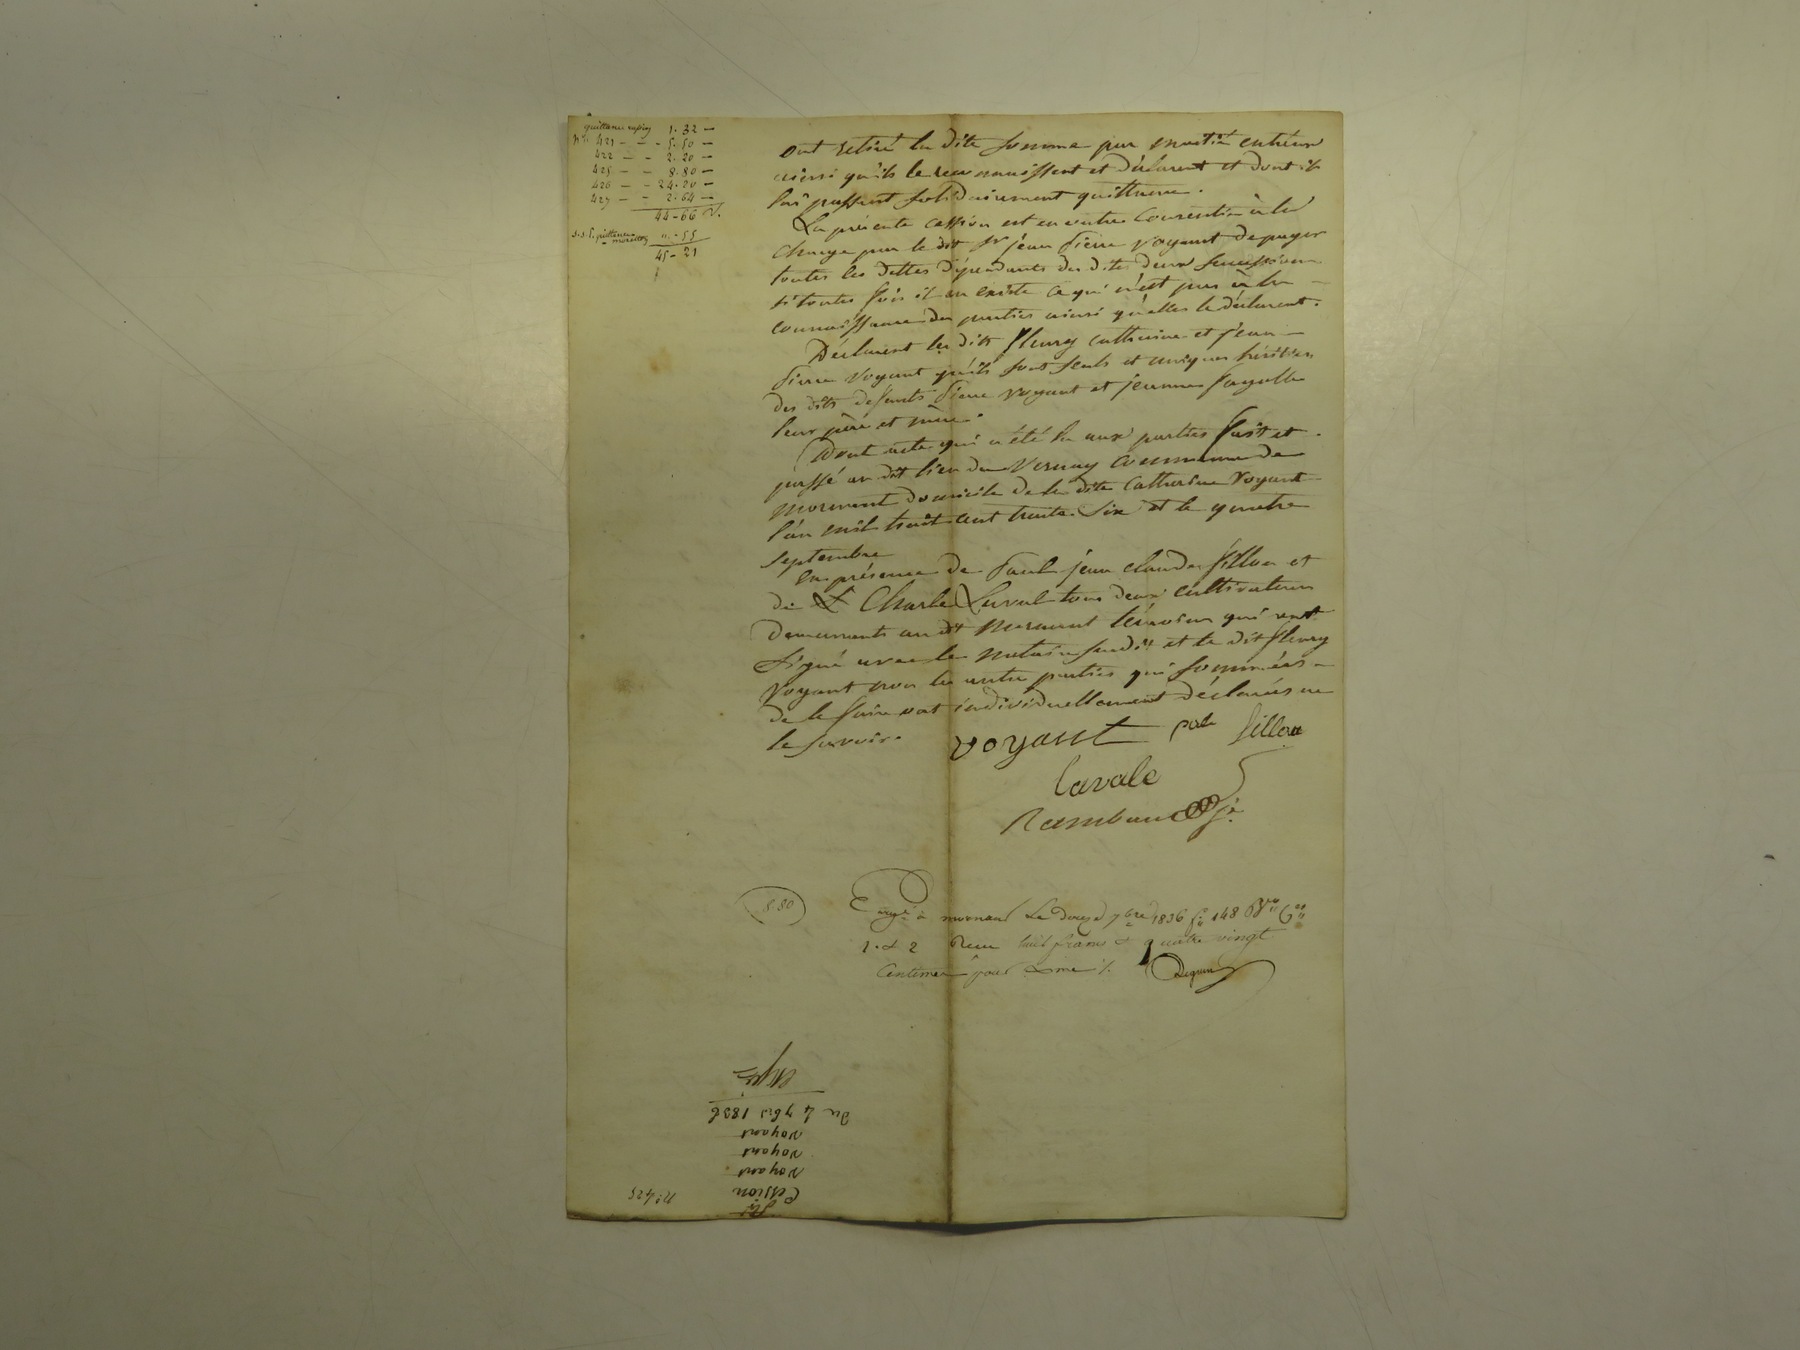 quittance 1.32 —
Nos 421 — — 5.50 —
422 — — 2.20 —
425 — — 8.80 —
426 — — 24.20 —
427 — — 2.64 —
44-66
quittance ". 55
45-21
ont retiré la dite somme par moitié entr'eux
ainsi qu'ils le reconnaissent et déclarent et dont ils
lui passent solidairement quittance.
La présente cession est en outre consentie à la
charge par le dit Sr jean Pierre Voyant de payer
toutes les dettes dépendants des dites deux successions
si toutes fois il en existe ce qui n'est pas à la
connaissance des parties ainsi qu'elles le déclarent.
Déclarent les dits fleury catherine et jean
Pierre Voyant qu'ils sont seuls et uniques héritiers
des dits defunts Pierre Voyant et jeanne fayolle
leur père et mère.
Dont acte qui a été lu aux parties fait et
passé au dit lieu du Vernay commune de
mornant domicile de la dite Catherine Voyant
l'an mil huit cent trente Six et le quatre
Septembre
En présence de Paul jean claude fillon et
de Charle Laval tous deux cultivateurs
demeurants au dit Mornant témoins qui ont
Signé avec le notaire susdit et le dit fleury
Voyant non les autres parties qui sommées
de le faire ont individuellement déclarées ne
le savoir.
voyant fillon
Lavale
Rambaud
8.80
Enregé à mornant Le douze 7bre 1836 fo 148 Vo Ces
1. et 2 Reçu huit francs et quatre vingt
Centimes pour Dixme
Cession
Voyant
Voyant
Voyant
Du 4 7bre 1836
No 425